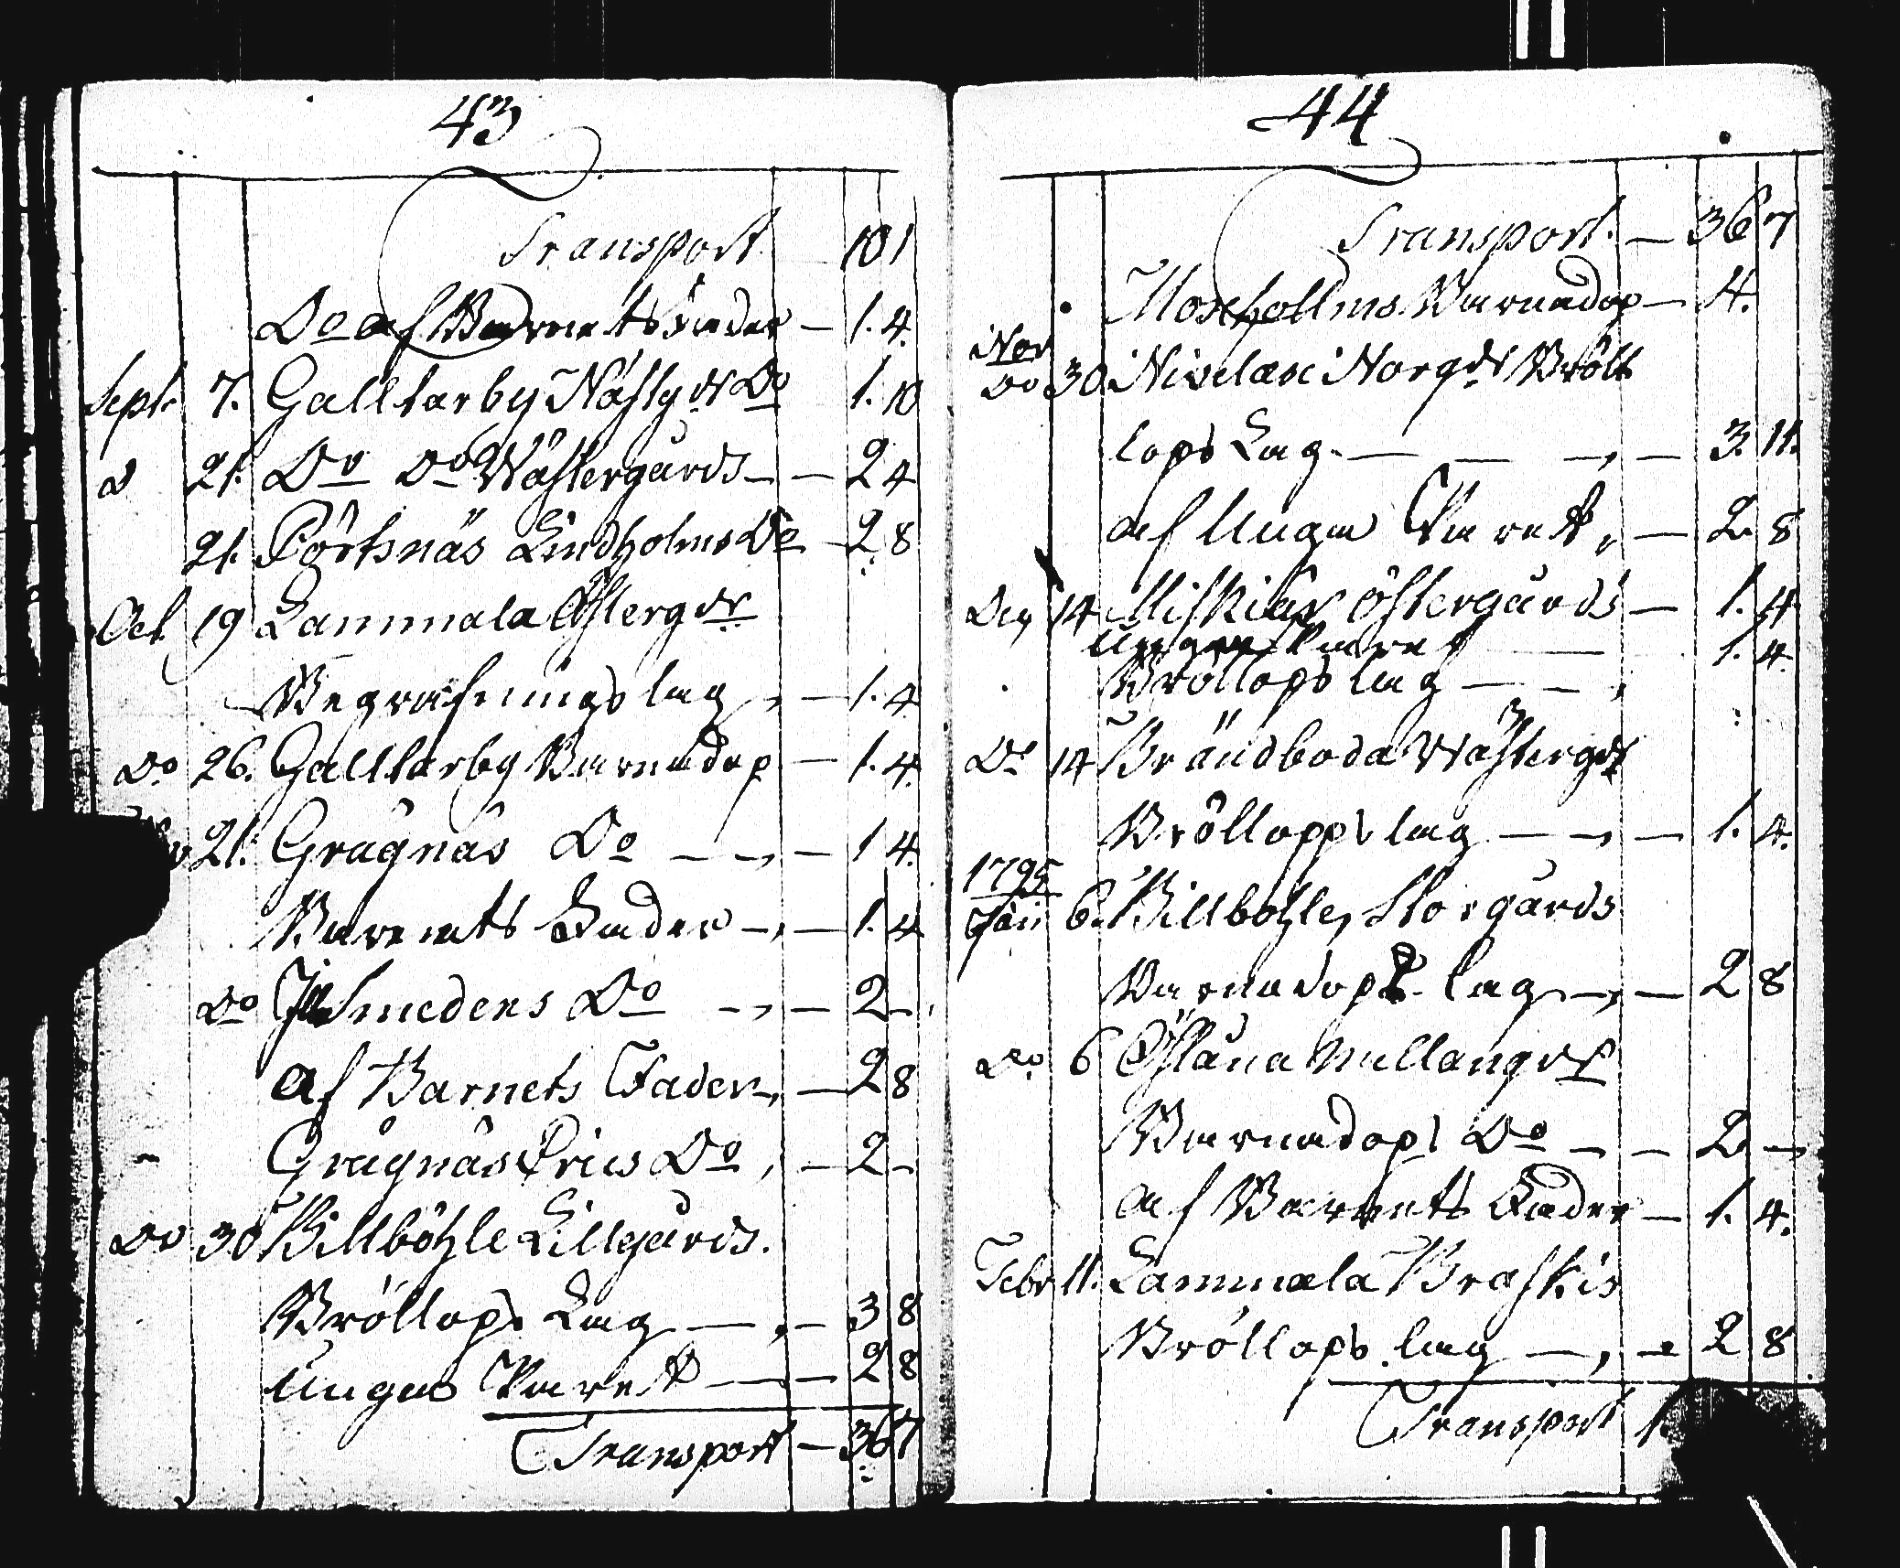 43
Transport 101
Do af Barnets Fader — 1. 4.
Sept. 7. Galltarby Nästgds Do 1. 10
d 21. Do Do Wästergårds — 2 4
21. Pörtsnäs Lindholms Do — 2 8
Oct. 19 Lammala Östergds
Begrafnings lag, — 1. 4
Do 26. Galltarby Barnadop — 1. 4.
21. Grågnäs Do — — 1 4.
Barnets Fader — — 1. 4
Do Smedens Do — — 2 —
af Barnets Fader, — 2 8
Grågnäs Erics Do, — 2 —
Do 30 Billböhle Lillgårds.
Bröllops Lag — — 3 8
Unga Paret — — 2 8
Transport — 36 7
44
Transport. — 36 7
Moxhollms Barnadop — 4.
Nov
Do 30 Nivelax Norgds Bröll
lops Lag. — — — — 3. 4.
af Unga Paret, — 2. 8
Dec 14 Miskiax Östergårds — 1. 4
Unga Paret — 1. 4
Bröllops lag — — ,
Do 14 Brändboda Wästergds
Bröllopps lag — — — 1. 4.
1795
Jan 6. Billbohle, Storgårds
Barnadops lag — — 2 8
Do 6 Östäna Mellangds
Barnadops Do — — 2 —
af Barnets Fader — 1. 4.
Febr 11. Lammala Braskis
Bröllops lag — , — 2 8
Transport